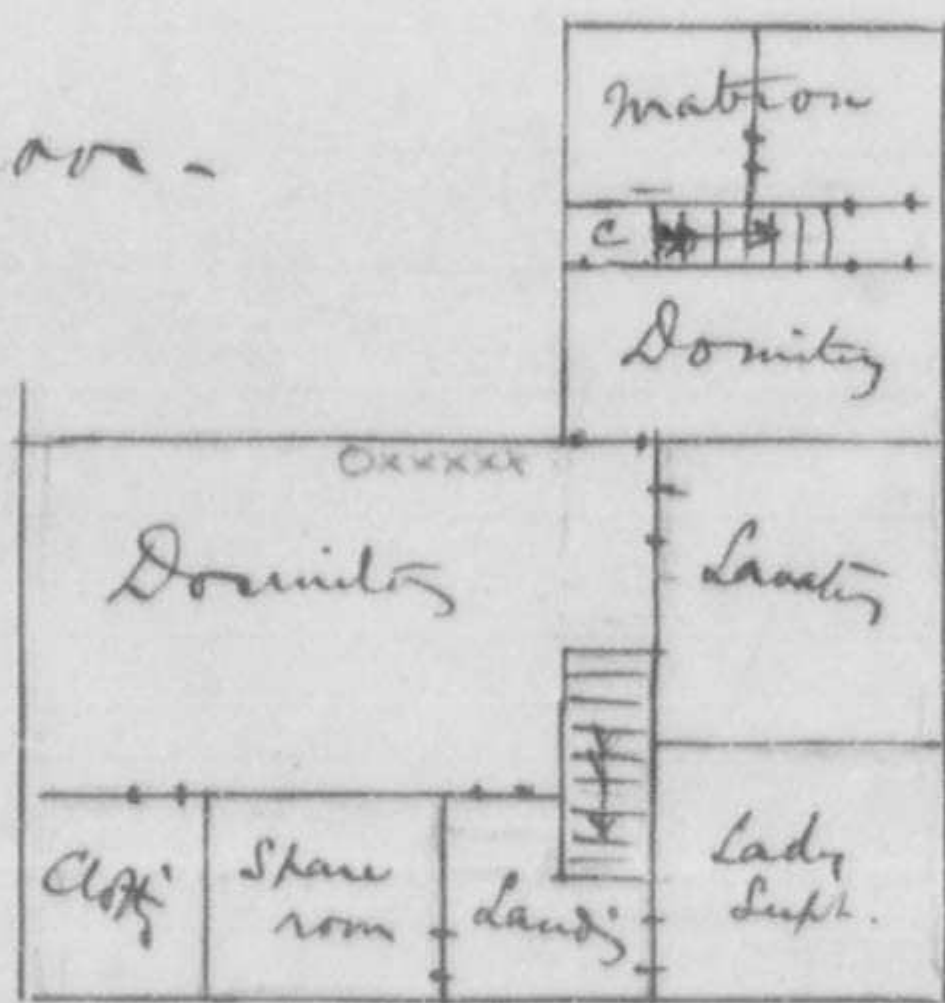 Matron
C
Dormitory
Oxxxxxx
Dormitory
Lavatory
Clothg
Spare
room
Landg
Lady
Supt.